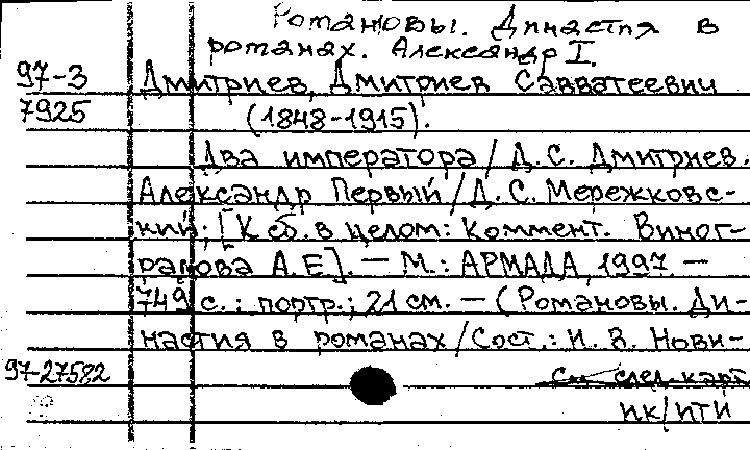 Романовы. Династия в
романах. Александр I.
97-3 Дмитриев, Дмитриев Савватеевич
7925 (1848-1915).
Два императора / Д. С. Дмитриев.
Александр Первый / Д. С. Мережковс-
кий; [К сб. в целом: Коммент. Виног-
радова А.Е]. — М.: АРМАДА, 1997. —
749 с.: портр.; 21 см. — (Романовы. Ди-
настия в романах / Сост.: И. В. Нови-
97-27582 см след карт
пк/пти